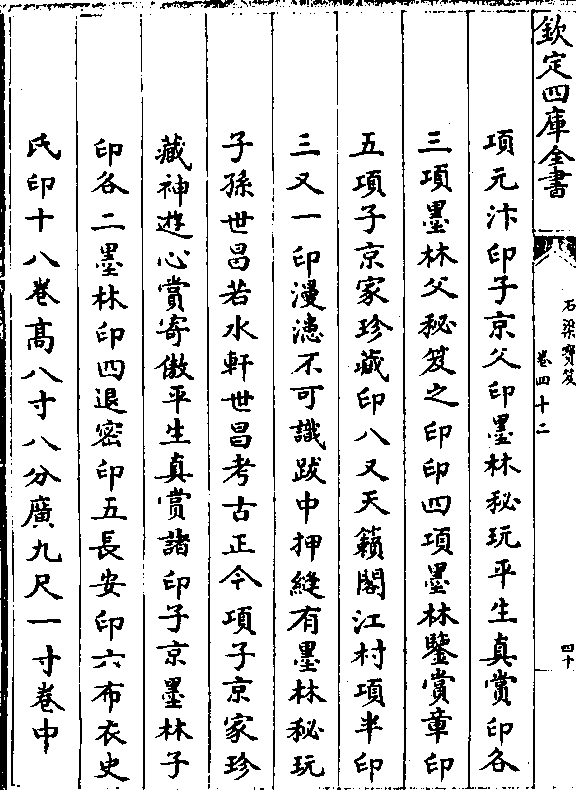 欽定四庫全書
石渠寳笈
卷四十二
四十
項元汴印子京父印墨林秘玩平生真賞印各
三項墨林父秘笈之印印四項墨林鑒賞章印
五項子京家珍藏印八又天籟閣江村項半印
三又一印漫漶不可識跋中押縫有墨林秘玩
子孫世昌若水軒世昌考古正今項子京家珍
藏神遊心賞寄傲平生真賞諸印子京墨林子
印各二墨林印四退密印五長安印六布衣史
氏印十八卷髙八寸八分廣九尺一寸卷中